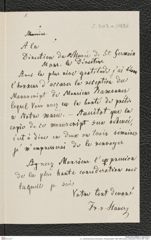 Monsieur
A la
Direction du Musée de St Germain
Mons. le Directeur
Avec la plus vive gratitude j'ai
l'honneur d'accuser la réception du
Manuscrit de Monsieur
lequel vous avez eu la bonté de prêter
à Notre
copie de ce manuscript sera achevée,
c'est à dire en deux ou trois semaines
je m'empresserai de le renvoyer
Agréez Monsieur l'expression
de la plus haute considération avec
laquelle je suis
Votre tout dévoué